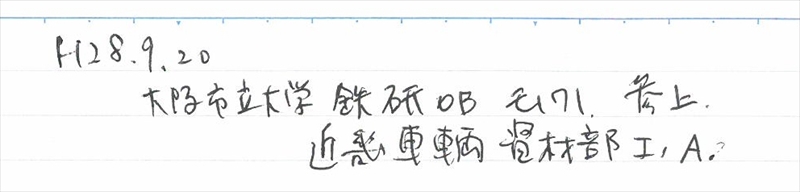 H28.9.20
大阪市立大学 鉄研OB 参上.
近畿車輌 資材部 I, A.